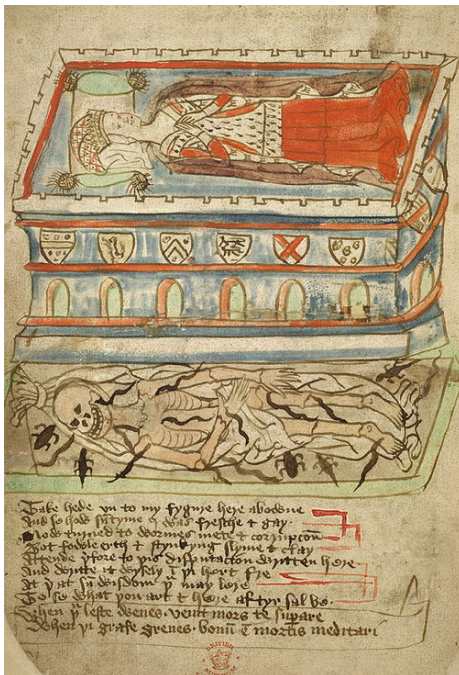 Take hede vn to my fygure here abowne
And se how sumtyme I was fresche & gay
Now turned to wormes mete & corrupcoun
Bot fowle erth & stynkyng slyme & clay
Attende þerfore to þis disputacion written here
And writte it wysely in þi hert fre
At þer at sum wisdom þu may lere
To se what þou art & here aftyr sal be
When þu leste wenes . venit mors te superare
When þi grafe grenes . bonum est mortis meditari